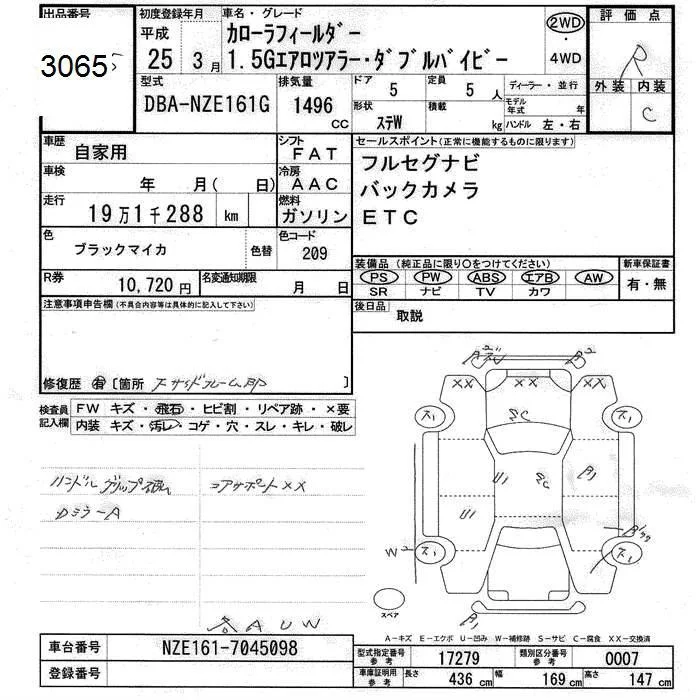 出品番号
3065
初度登録年月
平成
25 3月
車名・グレード
カローラフィールダー
1.5Gエアロツアラー・ダブルバイビー
2WD
・
4WD
評価点
R
外装 内装
C
型式
DBA-NZE161G
排気量
1496
CC
ドア 5
定員 5 人
ディーラー・並行
形状 ステW
積載 kg
モデル年式 年
ハンドル 左・右
車歴
自家用
シフト
FAT
車検
年 月( 日)
冷房
AAC
走行
19万1千288 km
燃料
ガソリン
色
ブラックマイカ
色替
色コード
209
R券
10,720円
名変通知期限
月 日
セールスポイント(正常に機能するものに限ります)
フルセグナビ
バックカメラ
ETC
装備品(純正品に限り〇をつけてください)
新車保証書
PS PW ABS エアB AW
SR ナビ TV カワ
有・無
後日品
取説
注意事項申告欄(不具合内容等は具体的に記入して下さい)
修復歴 有 〔箇所 〕
検査員
記入欄
FW キズ・飛石・ヒビ割・リペア跡・×要
内装 キズ・汚レ・コゲ・穴・スレ・キレ・破レ
ハンドル グリップ
コアサポートXX
DミラーA
A U W
XX XX XX
ス1 ス1
U1
U1
W2
ス1 ス1
スペア
A-キズ E-エクボ U-凹み W-補修跡 S-サビ C-腐食 XX-交換済
車台番号
NZE161-7045098
登録番号
型式指定番号
参考
17279
類別区分番号
参考
0007
車庫証明用
参考
長さ 436 cm
幅 169 cm
高さ 147 cm